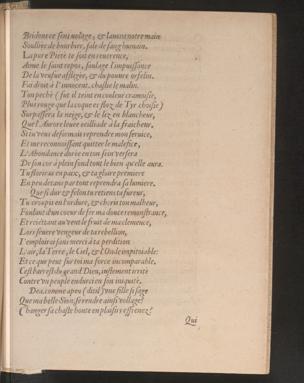 Bridons ce sens volage, & lavons notre main
Souillée de bourbier, sale de sang humain.
La pure Pieté te soit en reverence,
Aime le saint repos, soulage l'impuissance
De la veufve affligée, & du pauvre orfelin.
Fai droit à l'innocent, chastie le malin.
Ton peché (fut il teint en couleur cramoisie,
Plus rouge que la coque es floz de Tyr choisie)
Surpassera la neige, & le lez en blancheur,
Que l'Aurore leuee œilliade à la fraischeur,
Si tu veus desormais reprendre mon service,
Et me reconnoissant quitter le malefice,
L'Abondance dorée en ton sein versera
De son cor à plein fond tout le bien qu'elle aura.
Tu floriras en paix, & ta gloire premiere
En peu de tans par tout reprendra sa lumiere.
Que si dur & felon tu retiens ta fureur,
Tu croupis en l'ordure, & cheris ton malheur,
Foulant d'un coeur de fer ma douce remonstrance,
Et reiettant au vent le fruit de ma clemence,
Lors severe vengeur de ta rebellion,
I'emploirai sans merci à ta perdition
L'air, la Terre, le Ciel, & l'Onde impitoiable:
Et ce que peut sur toi ma force incomparable,
C'est l'arrest du grand Dieu, instement irrité
Contre un peuple endurci en son iniquité.
Dea, comme a peu (dit il) une fille si sage
Que ma belle Sion, se rendre ainsi volage?
Changer sa chaste honte en plaisirs essenez?
Qui